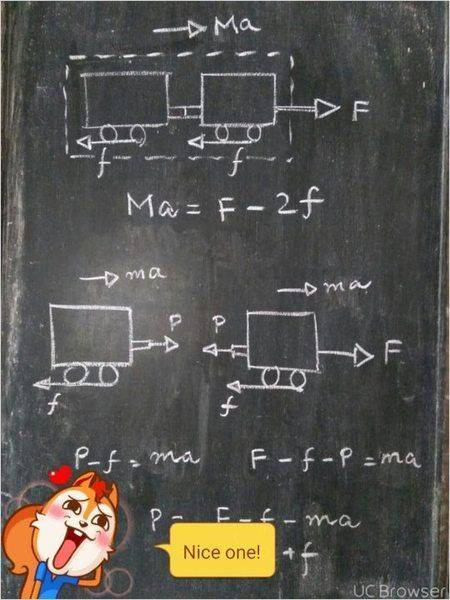 Ma
F
f f
Ma = F - 2f
ma ma
P P
F
f f
P - f = ma F - f - P = ma
P = F - f - ma
+ f
Nice one!
UC Browser